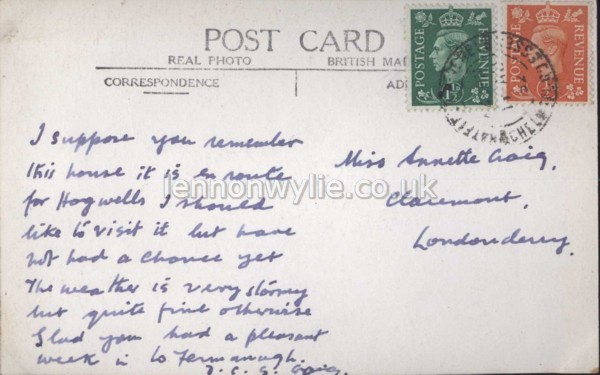 POST CARD
REAL PHOTO
BRITISH MA
CORRESPONDENCE
AD
POSTAGE
REVENUE
POSTAGE
REVENUE
I suppose you remember
this house it is en route
for Hogwells I should
like to visit it but have
not had a chance yet
The weather is very stormy
but quite fine otherwise
Glad you had a pleasant
week in Co Fermanagh.
Craig.
Miss Annette Craig,
Claremont,
Londonderry.
lennonwylie.co.uk